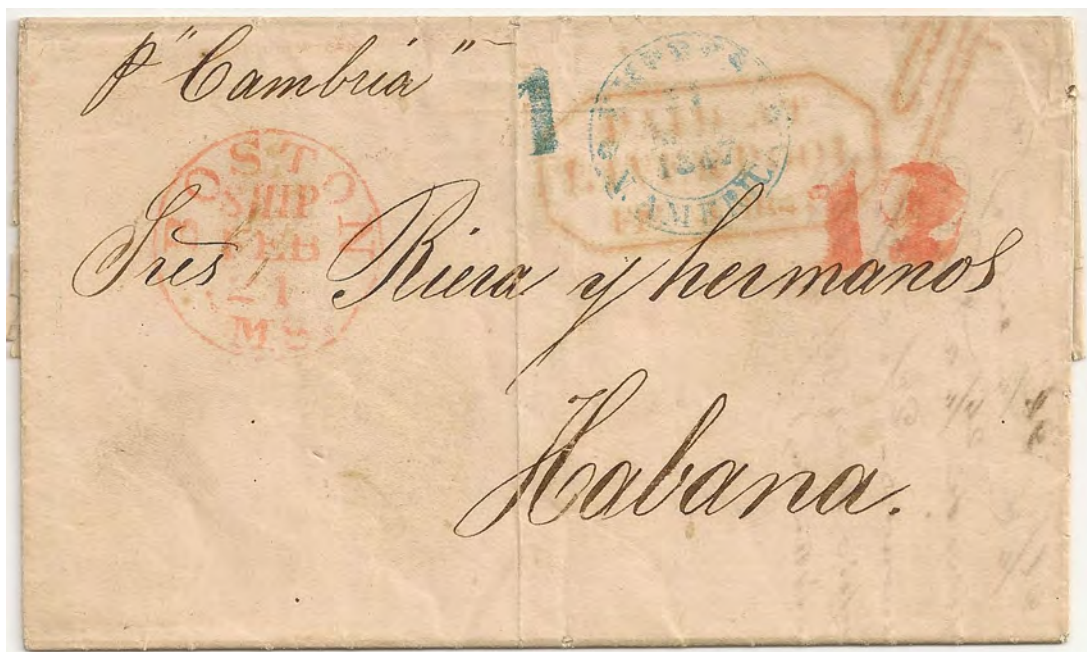 p "Cambria"
1
1847
PAID AT
LIVERPOOL
12
BOSTON
SHIP
FEB
21
MS
Sres Riera y hermanos
Habana.